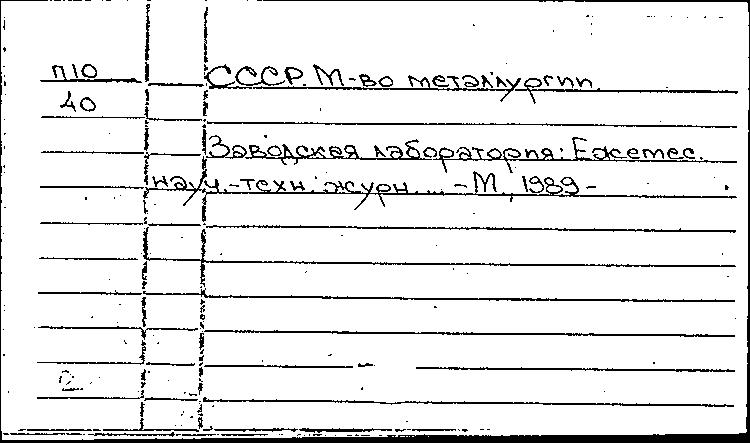 П10 СССР. М-во металлургии.
40
Заводская лаборатория: Ежемес.
науч.-техн. журн. ... - М., 1989 -
2